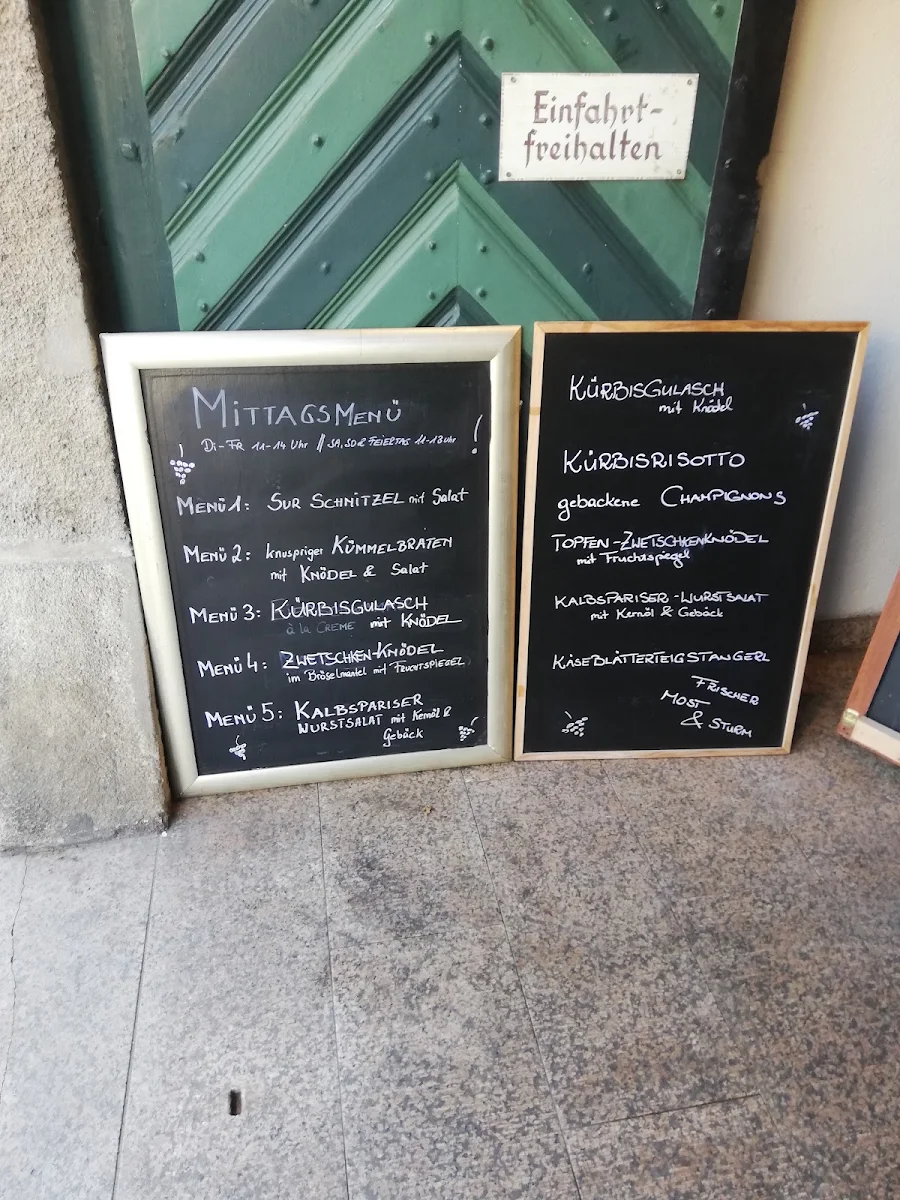 Einfahrt-
freihalten
MITTAGSMENÜ
Di-FR 11-14 Uhr // SA, SO & FEIERTAG 11-18 Uhr !
MENÜ 1: SUR SCHNITZEL mit Salat
MENÜ 2: knuspriger KÜMMELBRATEN
mit KNÖDEL & Salat
MENÜ 3: KÜRBISGULASCH
à la CREME mit KNÖDEL
MENÜ 4: ZWETSCHKEN-KNÖDEL
im Bröselmantel mit FRUCHTSPIEGEL
MENÜ 5: KALBSPARISER
WURSTSALAT mit Kernöl &
Gebäck
KÜRBISGULASCH
mit Knödel
KÜRBISRISOTTO
gebackene CHAMPIGNONS
TOPFEN-ZWETSCHKENKNÖDEL
mit Fruchtspiegel
KALBSPARISER-WURSTSALAT
mit Kernöl & Gebäck
KÄSEBLÄTTERTEIGSTANGERL
FRISCHER
MOST
& STURM